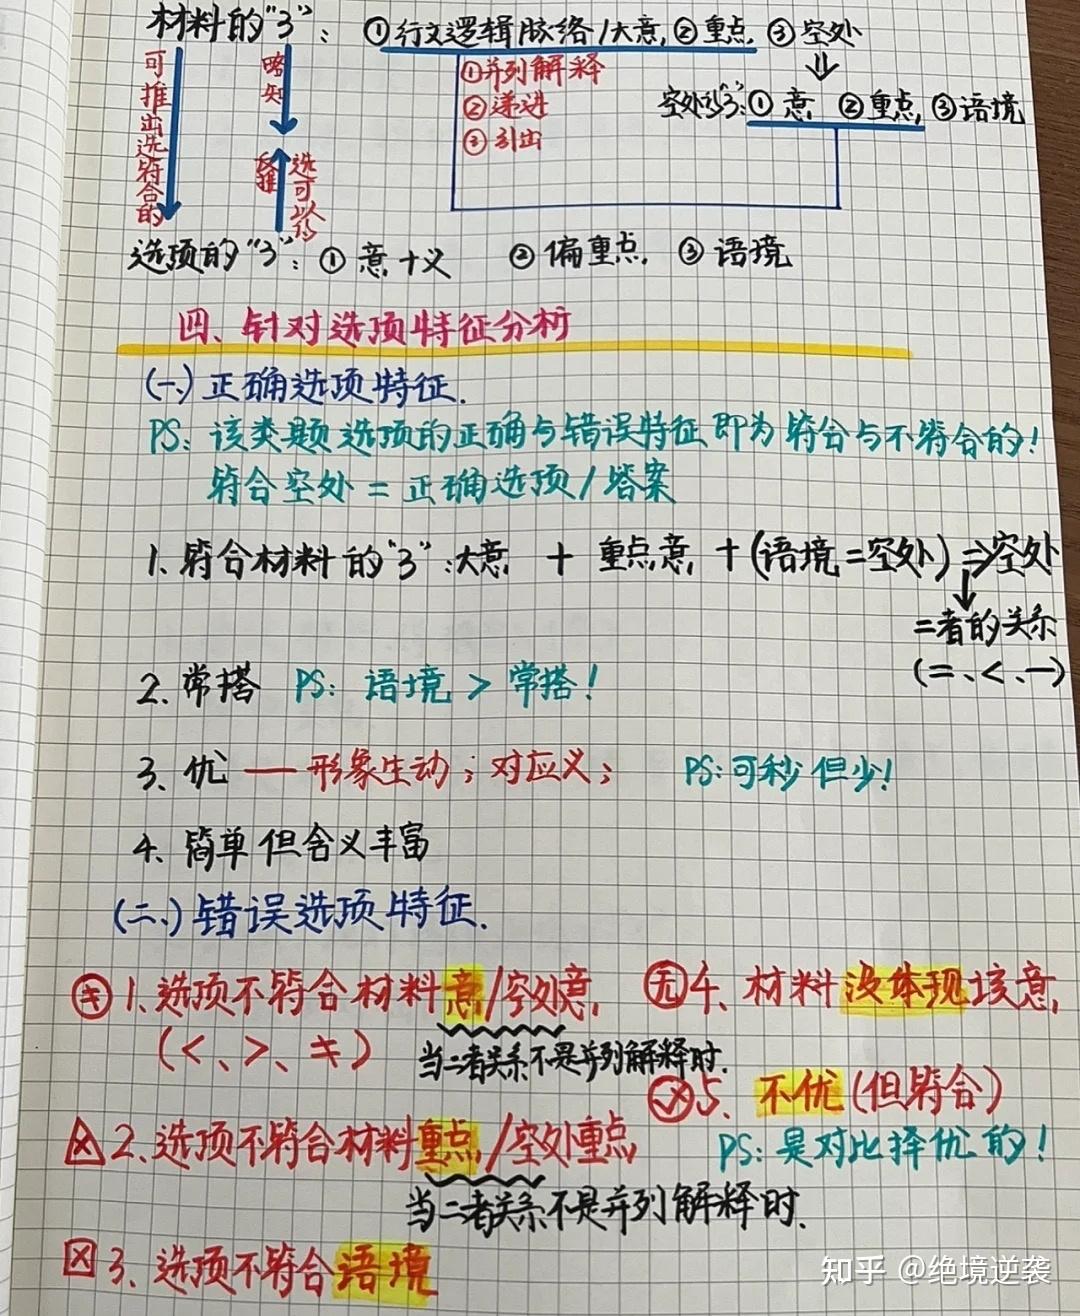 材料的"3"：①行文逻辑脉络/大意，②重点，③空处
可推出选符合的
略知
①并列解释
②递进
③引出
空处的"3"：①意，②重点，③语境
反推
选可以的
选项的"3"：①意+义 ②偏重点，③语境
四、针对选项特征分析
(一)正确选项特征.
PS：该类题选项的正确与错误特征即为符合与不符合的！
符合空处=正确选项/答案
1.符合材料的"3"：大意 + 重点意，+(语境=空处)⇒空处
二者的关系
(=、<、一)
2.常搭 PS：语境>常搭！
3.优 — 形象生动；对应义； PS：可秒但少！
4.简单但含义丰富
(二)错误选项特征.
1.选项不符合材料意/空处意，
(<、>、≠)
当二者关系不是并列解释时.
无 4.材料没体现该意，
5.不优(但符合)
PS：是对比择优的！
2.选项不符合材料重点/空处重点
当二者关系不是并列解释时.
3.选项不符合语境
知乎 @绝境逆袭